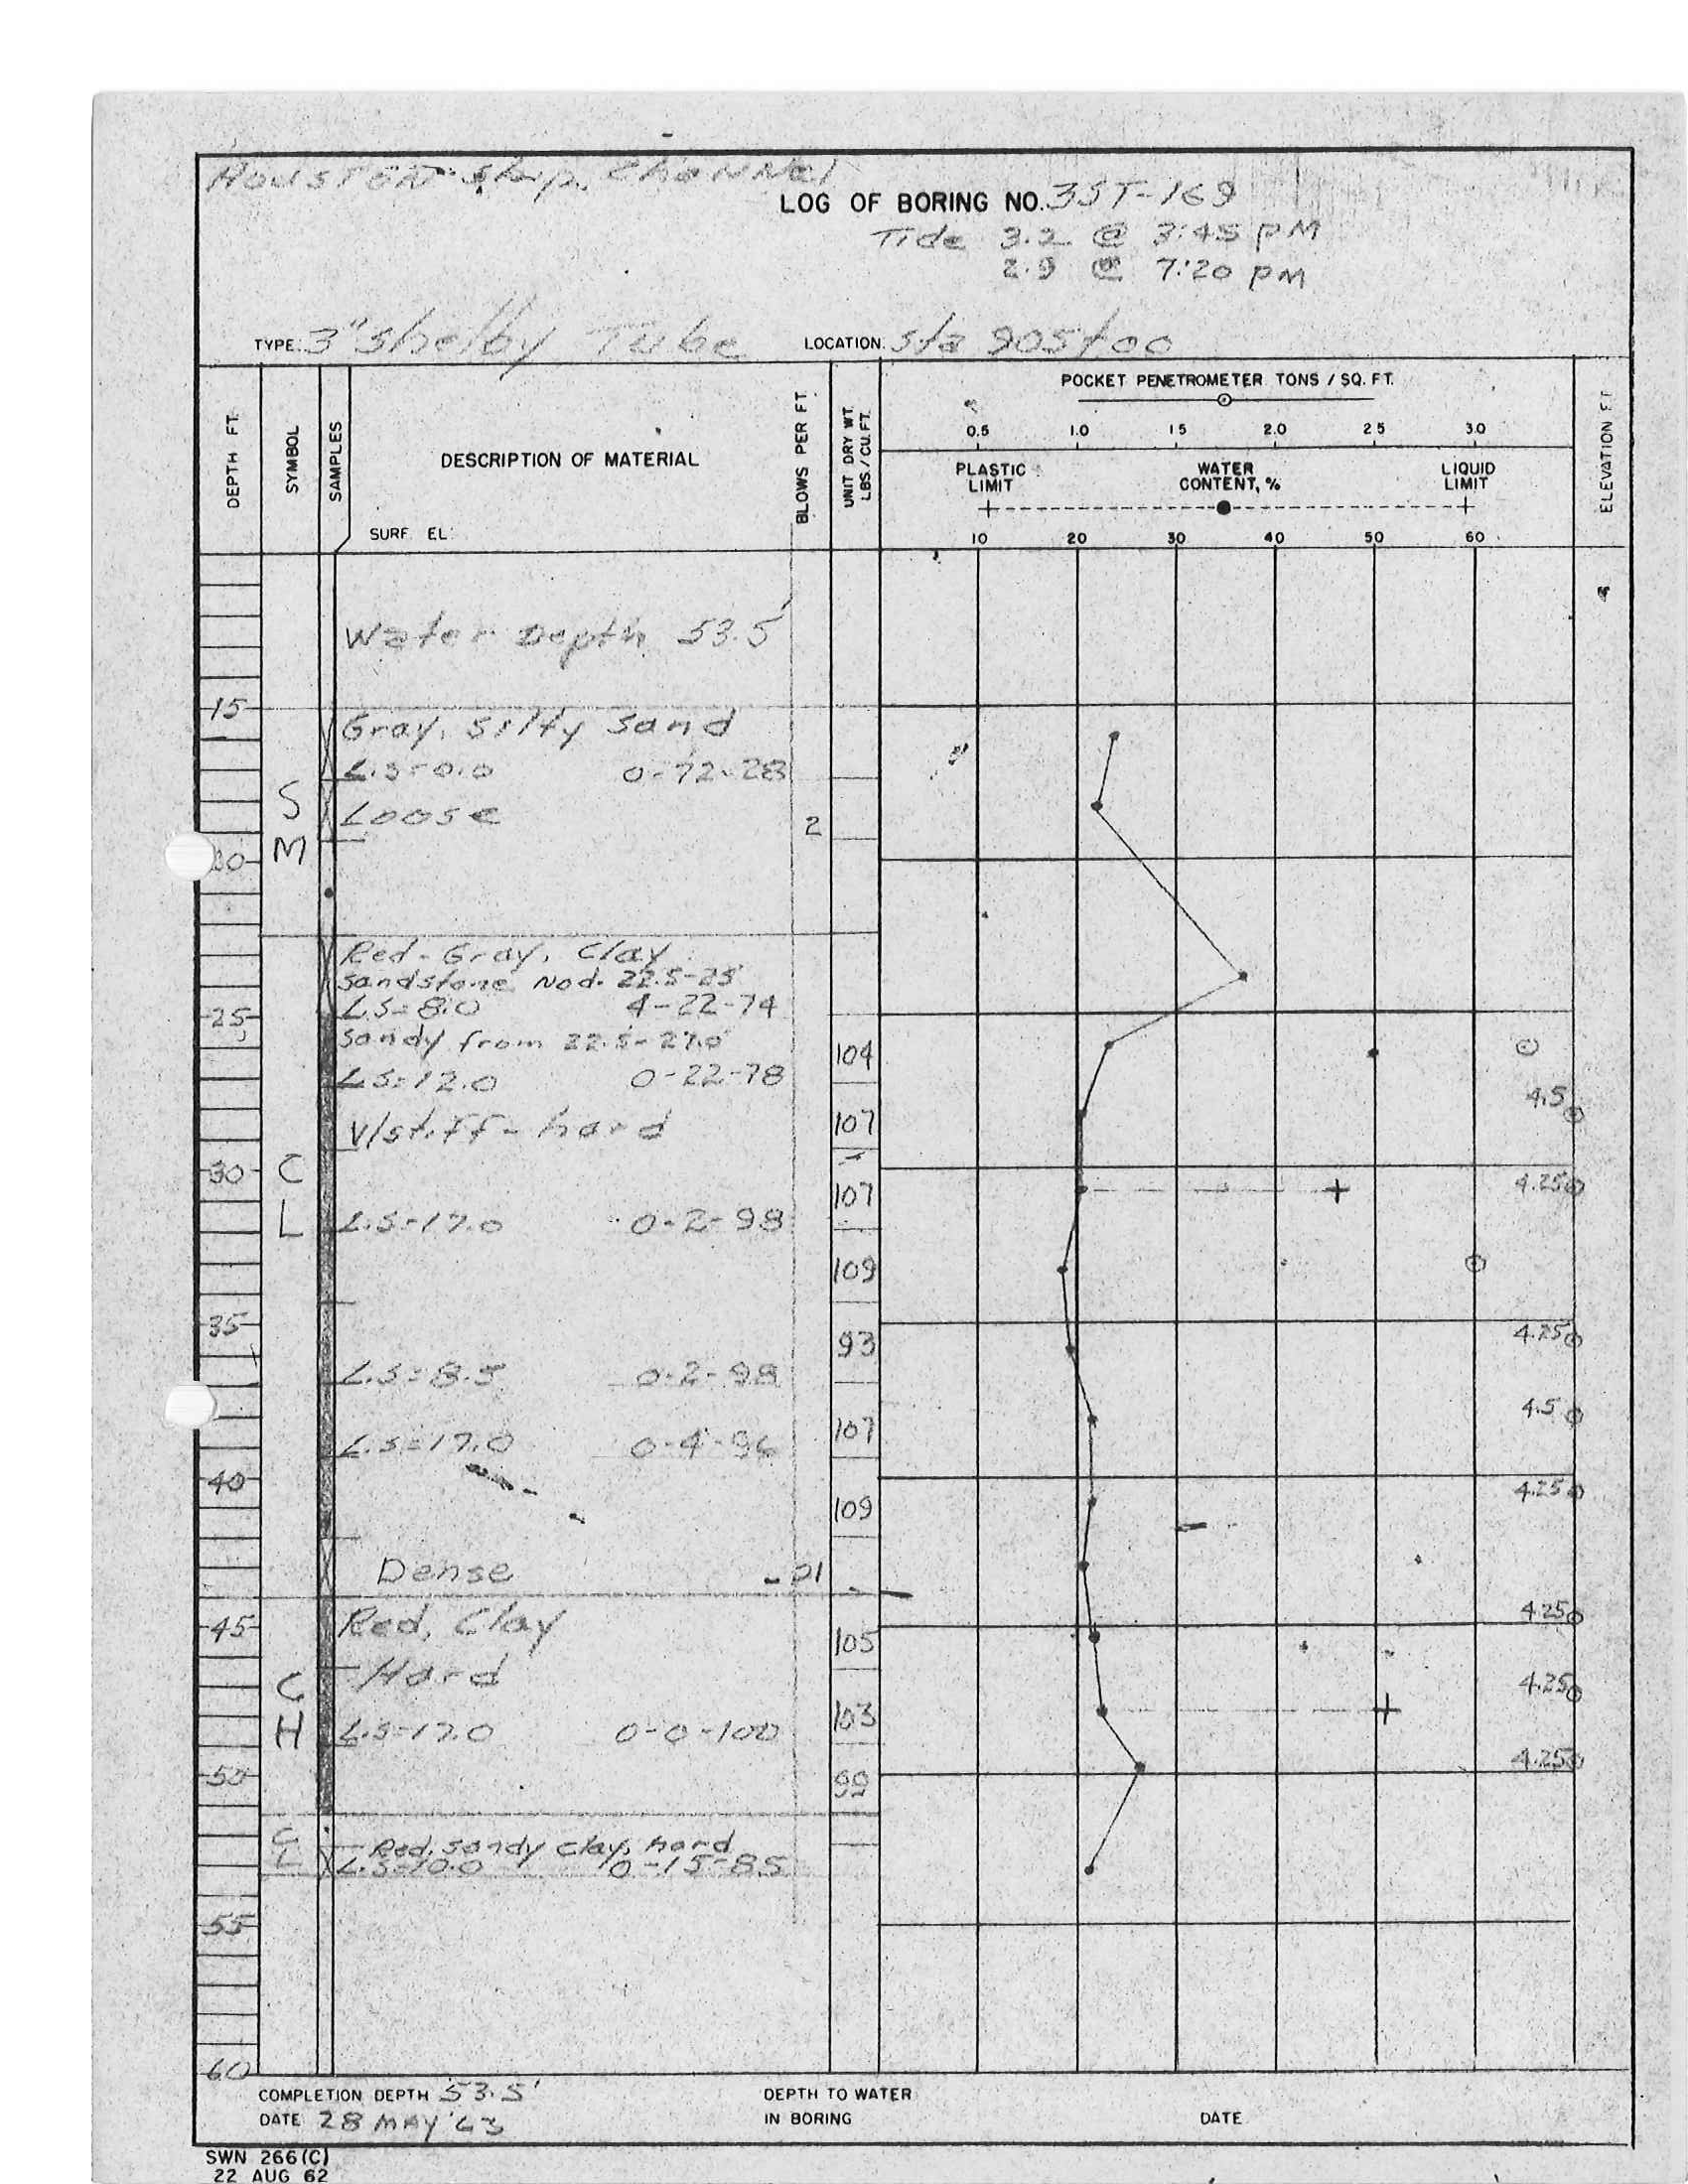 Houston Ship Channel
LOG OF BORING NO. 3ST-169
Tide 3.2 @ 3:45 PM
2.9 @ 7:20 PM
TYPE: 3" Shelby Tube LOCATION: Sta 905+00
DEPTH FT.
SYMBOL
SAMPLES
DESCRIPTION OF MATERIAL
SURF. EL:
BLOWS PER FT.
UNIT DRY WT. LBS./CU.FT.
POCKET PENETROMETER TONS / SQ. FT.
0.5 1.0 1.5 2.0 2.5 3.0
PLASTIC LIMIT WATER CONTENT, % LIQUID LIMIT
10 20 30 40 50 60
ELEVATION FT
Water Depth 53.5'
15
Gray, silty sand
L.S=0.0 0-72-28
S
Loose 2
M
Red-Gray, Clay
Sandstone Nod. 22.5-25'
L.S=8.0 4-22-74
25
Sandy from 22.5-27.0'
104
LS=12.0 0-22-78
4.5
V/stiff-hard 107
30 C
107 4.25
L L.S=17.0 0-2-98
109
35
93 4.25
L.S=8.5 0-2-98
107 4.5
L.S=17.0 0-4-96
40 4.25
109
Dense 21
45 Red, Clay 4.25
105
C Hard 4.25
H L.S=17.0 0-0-100 103
50 99 4.25
C
L Red, sandy clay, hard
L.S=10.0 0-15-85
55
60
COMPLETION DEPTH 53.5' DEPTH TO WATER
DATE 28 MAY '63 IN BORING DATE
SWN 266(C)
22 AUG 62